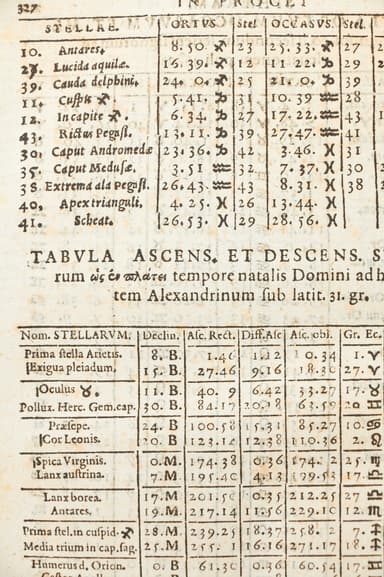 327 IN PROCEI
STELLÆ. ORTVS. Stel OCCASVS. Stel.
10. Antares. 8. 50 ♐ 23 25. 33. ♐ 27
27. Lucida aquilæ. 16. 39. ♑ 12 11 22. ♑ 29
39. Cauda delphini. 24. 0. ♑ 25 21. 0. ♑ 39
11. Cuspis ♐. 5. 41. ♑ 31 10. 39 ♒ 28
12. In capite ♐. 6. 34. ♑ 27 17. 22. ♒ 43
43. Rictus Pegasi. 13. 11. ♑ 39. 27. 47. ♒ 41
30. Caput Andromedæ 23. 36. ♑ 42 3. 46. ♓ 31
35. Caput Medusæ. 3. 51 ♒ 32 7. 37. ♓ 30
38 Extrema ala Pegasi. 26. 43. ♒ 43 8. 31. ♓ 38
40. Apex trianguli. 4. 25. ♓ 26 13. 44. ♓
41. Scheat. 26. 53. ♓ 29 28. 56. ♓
TABVLA ASCENS. ET DESCENS. S
rum ὡς ἐν πλάτει tempore natalis Domini ad h
tem Alexandrinum sub latit. 31. gr.
Nom. STELLARVM. Declin. Asc. Rect. Diff. Asc Asc. obl. Gr. Ec.
Prima stella Arietis. 8. B. 1. 46 1. 12 0. 34 1. ♈
Exigua pleiadum. 15. B. 27. 46 9. 16 18. 30 27. ♈
Oculus ♉. 11. B. 40. 9 6. 42 33. 27 17. ♉
Pollux. Herc. Gem. cap. 30. B. 84. 17 20. 18 63. 59 20 ♊
Præsepe. 24. B 100. 58 15. 31 85. 27 10. ♋
Cor Leonis. 20. B. 123. 14 12. 38 110. 36 2. ♌
Spica Virginis. 0. M. 174. 38 0. 36 174. 2 25. ♍
Lanx austrina. 7. M. 195. 40 4. 13 199. 53 17. ♎
Lanx borea. 17. M. 201. 50 0. 35 212. 25 27 ♎
Antares. 19. M. 217. 14 11. 56 229. 10 12. ♏
Prima stel. in cuspid. ♐ 28. M. 239. 25 18. 37 258. 2 7. ♐
Media trium in cap. sag. 25. M. 255. 1 16. 16 271. 17 18. ♐
Humerus d. Orion. 0. B 61. 30 0. 36 60. 54 17. ♊